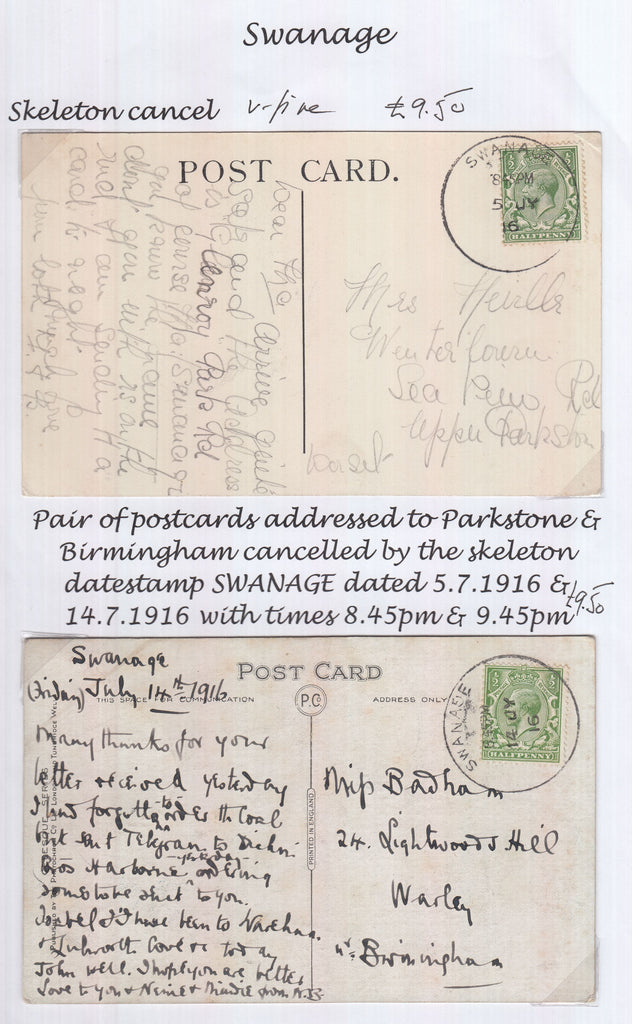 Swanage
Skeleton cancel v-fine £9.50
POST CARD.
SWANAGE
8.45PM
5 JY
16
HALFPENNY
Dear
arrived quite
safe and the address
is Clenroy Park Rd
of course
you know the name
don't you with is on the
and I am sending H a
card to night
from both
Mrs
Sea View Rd
Upper Parkston
Dorset
Pair of postcards addressed to Parkstone &
Birmingham cancelled by the skeleton
datestamp SWANAGE dated 5.7.1916 &
14.7.1916 with times 8.45pm & 9.45pm £9.50
Swanage
(Friday) July 14th 1916
POST CARD
THIS SPACE FOR COMMUNICATION
P.C
ADDRESS ONLY
PRINTED IN ENGLAND
SWANAGE
14 JY
16
HALFPENNY
Many thanks for your
letter received yesterday
I had forgotten to order the Coal
but sent Telegram to
Bros Harborne yesterday ordering
some to be sent to you.
Isobel & I have been to Wareham
& Lulworth Cove & today
John well. I hope you are better
Love to you & & from
Miss Badham
24. Lightwoods Hill
Warley
Nr Birmingham